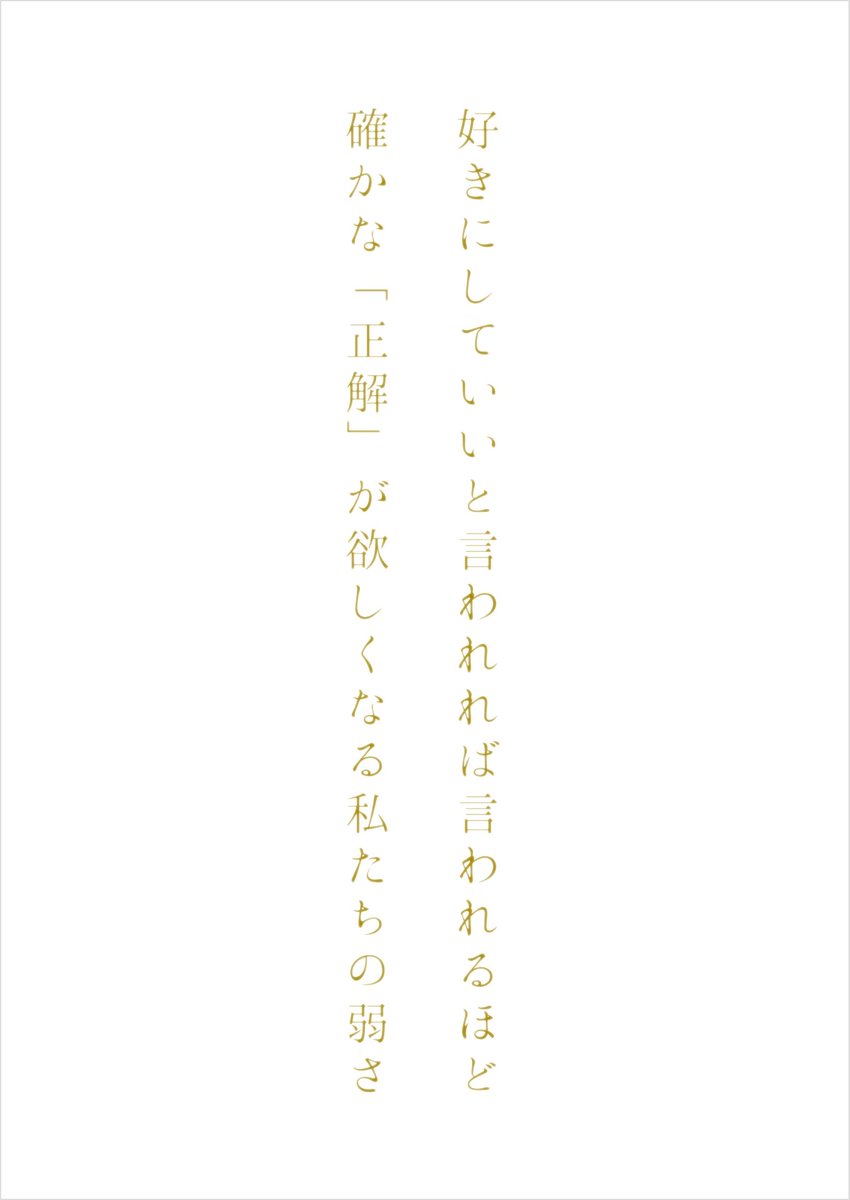 好きにしていいと言われれば言われるほど
確かな「正解」が欲しくなる私たちの弱さ